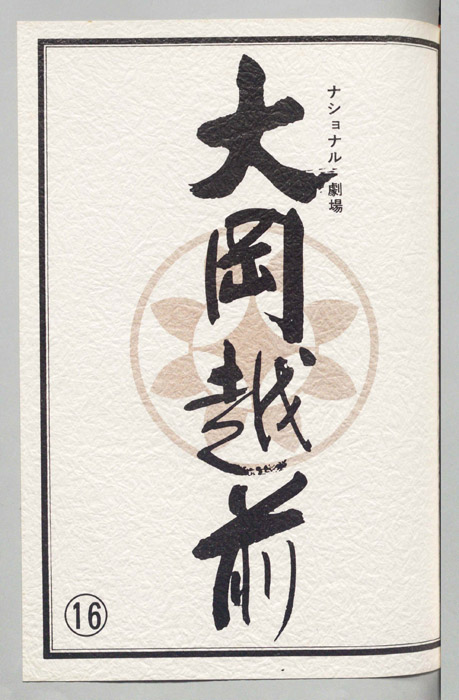 ナショナル劇場
大岡越前
16